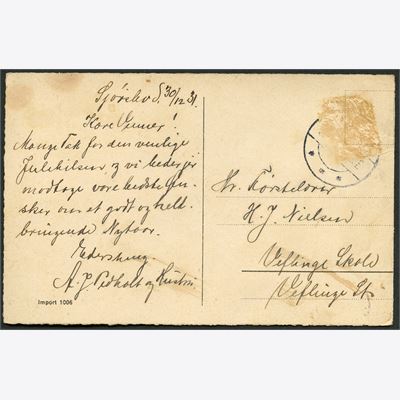 Sjörslev S. 30/12 31.
Kære Venner!
Mange Tak for den venlige
Julehilsen, og vi beder jer
modtage vore bedste Øn-
sker om et godt og held-
bringende Nytaar.
A. J. Vedholt og Kristine
Import 1006
Hr. Førstelærer
H. J. Nielsen
Veflinge Skole
Veflinge St.